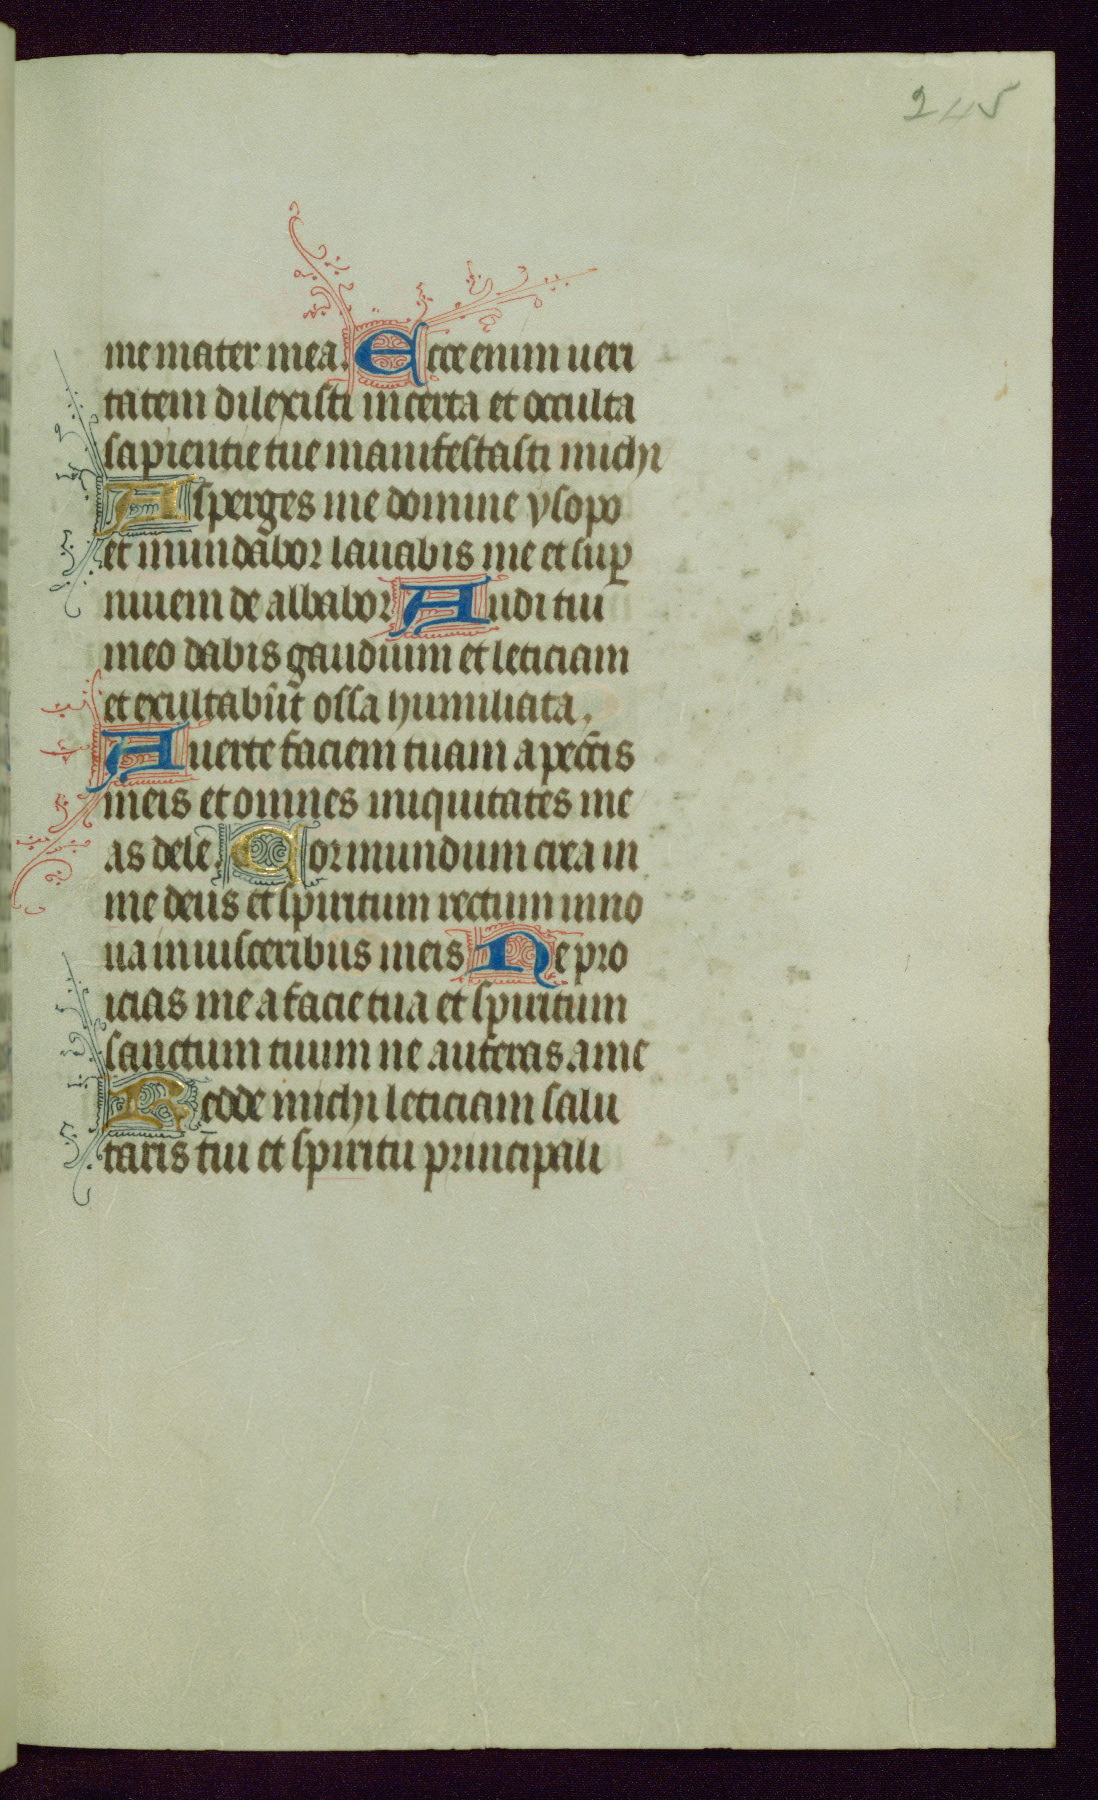 245
me mater mea. Ecce enim ueri
tatem dilexisti incerta et occulta
sapientie tue manifestasti michi
Asperges me domine ysopo
et mundabor lauabis me et sup̱
niuem de albabor Auditui
meo dabis gaudium et leticiam
et exultabūt ossa humiliata.
Auerte faciem tuam a pecc̄is
meis et omnes iniquitates me
as dele. Cor mundum crea in
me deus et spiritum rectum inno
ua in uisceribus meis Ne pro
icias me a facie tua et spiritum
sanctum tuum ne auferas a me
Redde michi leticiam salu
taris tui et spiritu principali